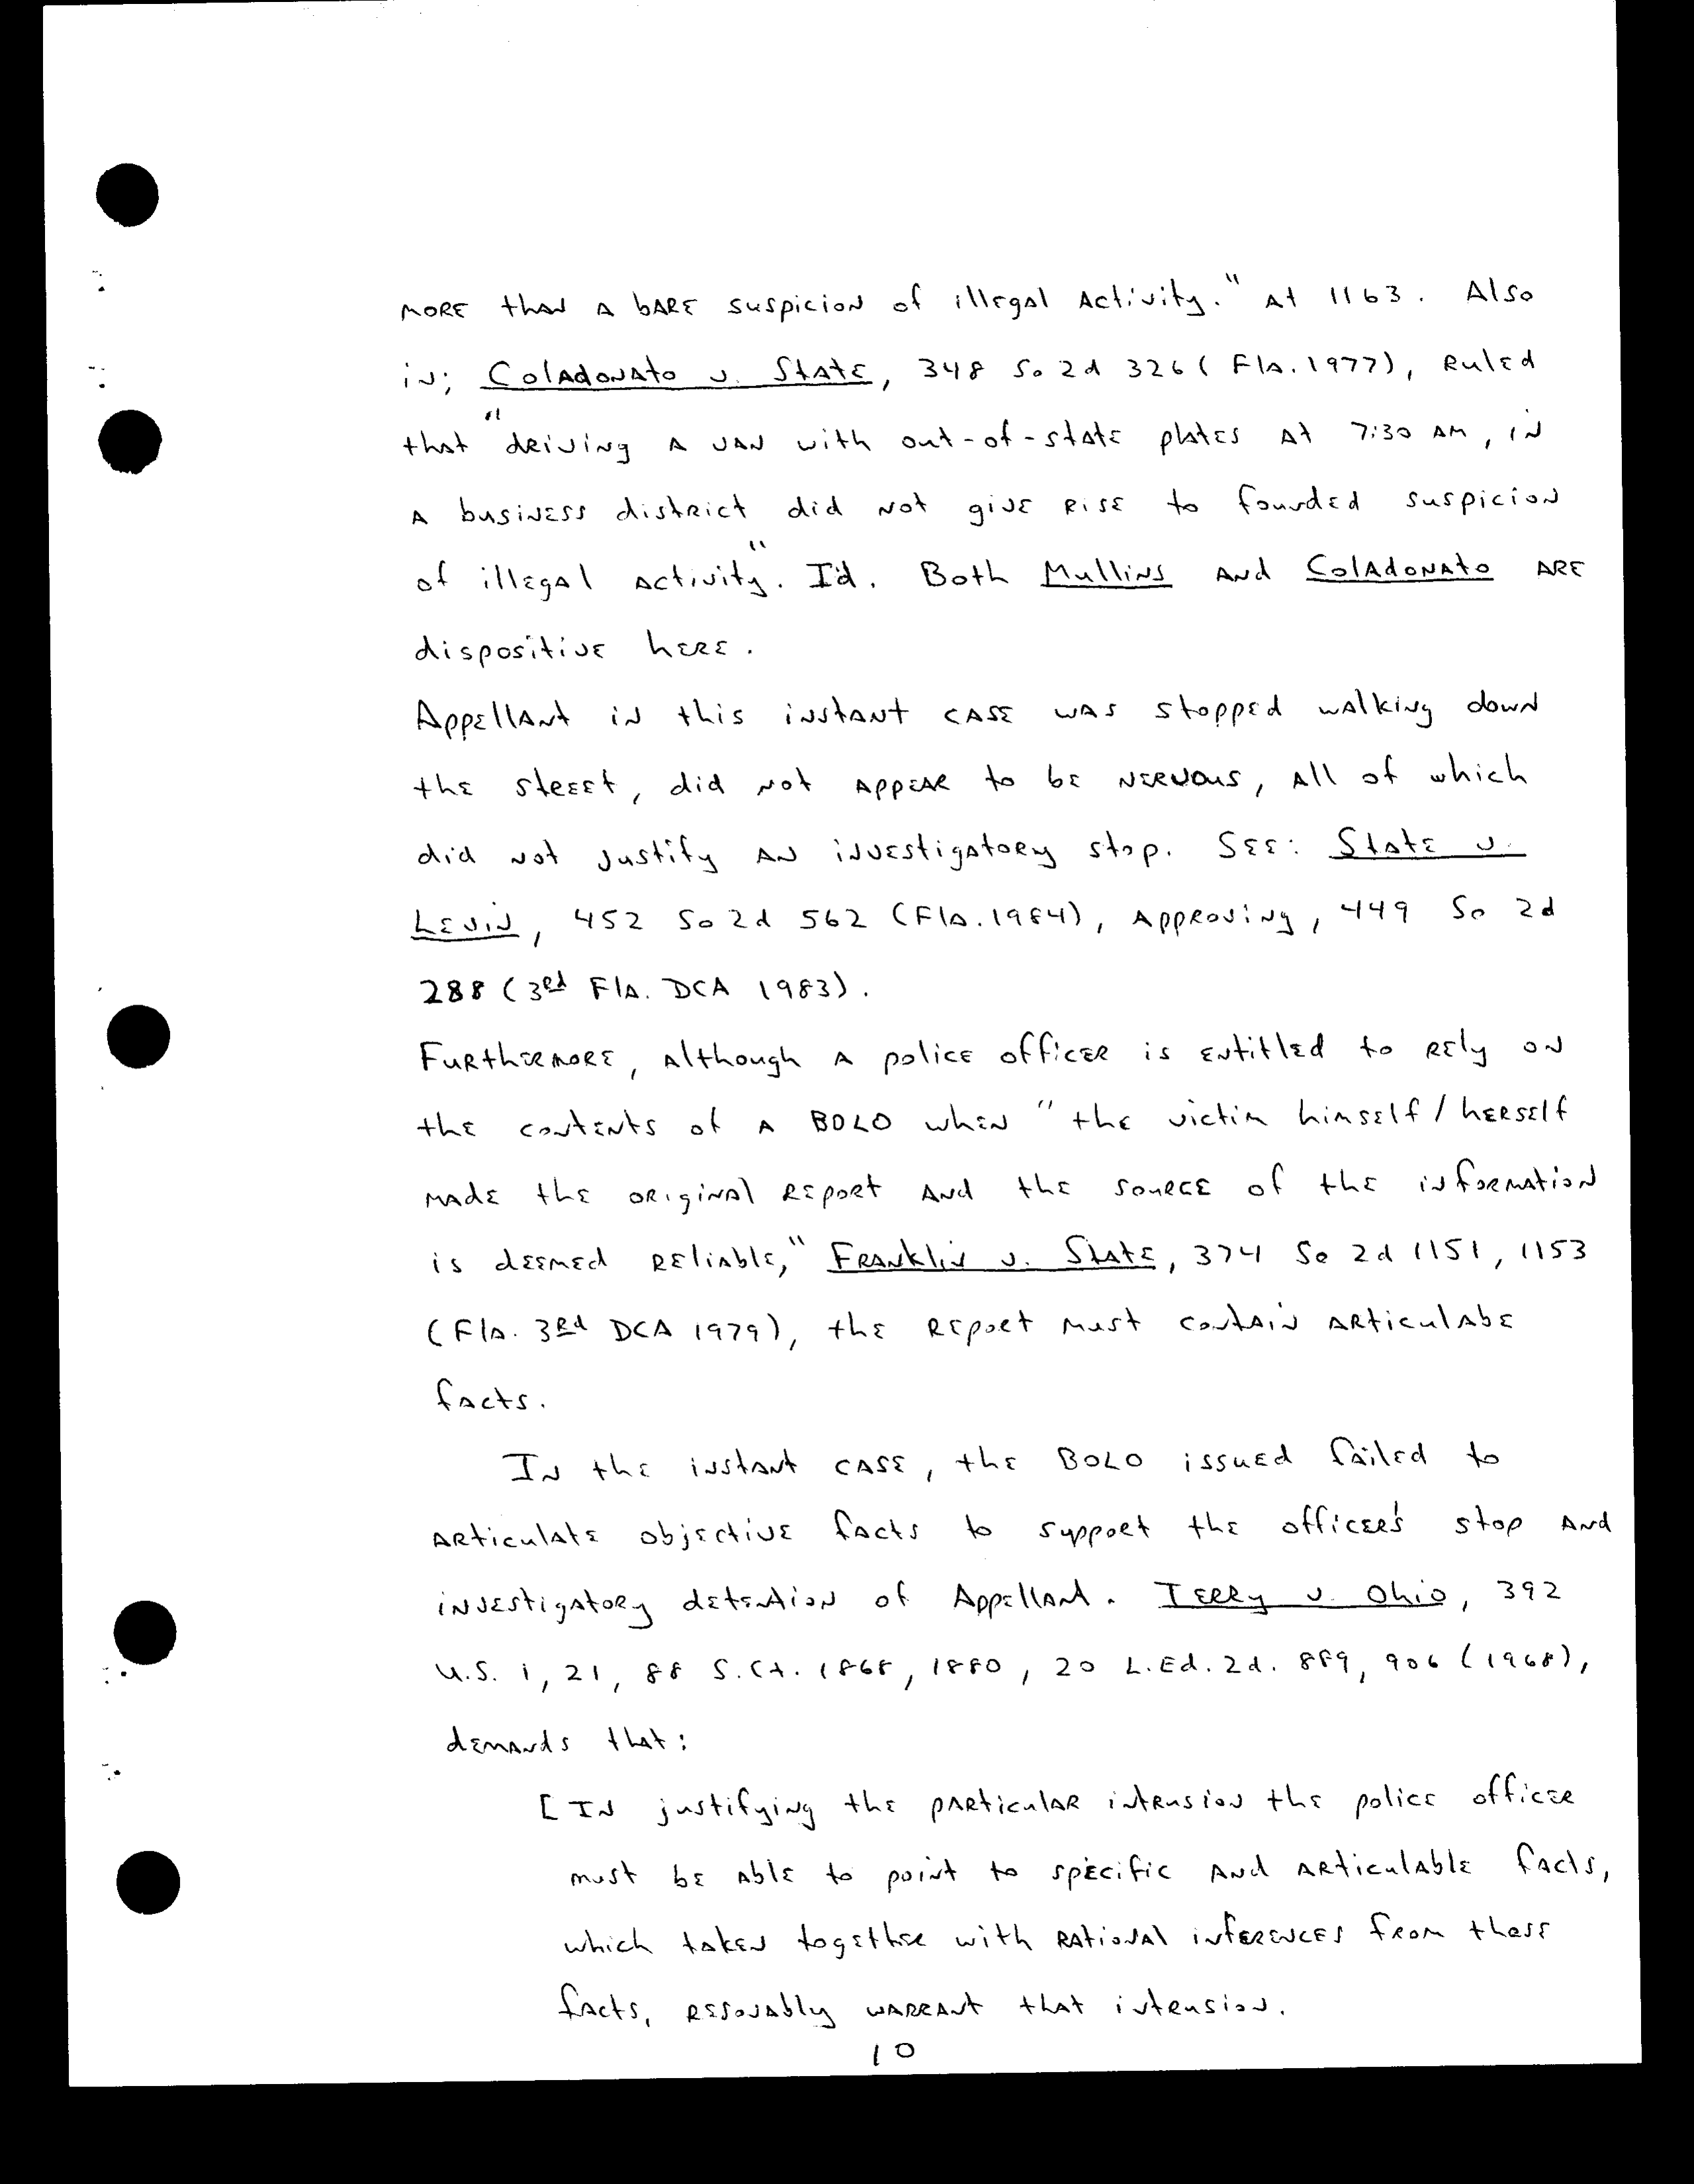 more than a bare suspicion of illegal activity." at 1163. Also
in; Coladonato v. State, 348 So 2d 326 (Fla. 1977), ruled
that "driving a van with out-of-state plates at 7:30 AM, in
a business district did not give rise to founded suspicion
of illegal activity". Id. Both Mullins and Coladonato are
dispositive here.
Appellant in this instant case was stopped walking down
the street, did not appear to be nervous, all of which
did not justify an investigatory stop. See: State v.
Levin, 452 So 2d 562 (Fla. 1984), approving, 449 So 2d
288 (3rd Fla. DCA 1983).
Furthermore, although a police officer is entitled to rely on
the contents of a BOLO when "the victim himself/herself
made the original report and the source of the information
is deemed reliable," Franklin v. State, 374 So 2d 1151, 1153
(Fla. 3rd DCA 1979), the report must contain articulabe
facts.
In the instant case, the BOLO issued failed to
articulate objective facts to support the officer's stop and
investigatory detention of Appellant. Terry v. Ohio, 392
U.S. 1, 21, 88 S.Ct. 1868, 1880, 20 L.Ed.2d. 889, 906 (1968),
demands that:
[In justifying the particular intrusion the police officer
must be able to point to specific and articulable facts,
which taken together with rational inferences from those
facts, resonably warrant that intrusion.
10